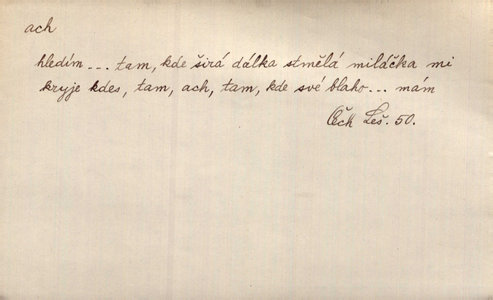 ach
hledím... tam, kde širá dálka stmělá miláčka mi
kryje kdes, tam, ach, tam, kde své blaho... mám
Čch Leš. 50.